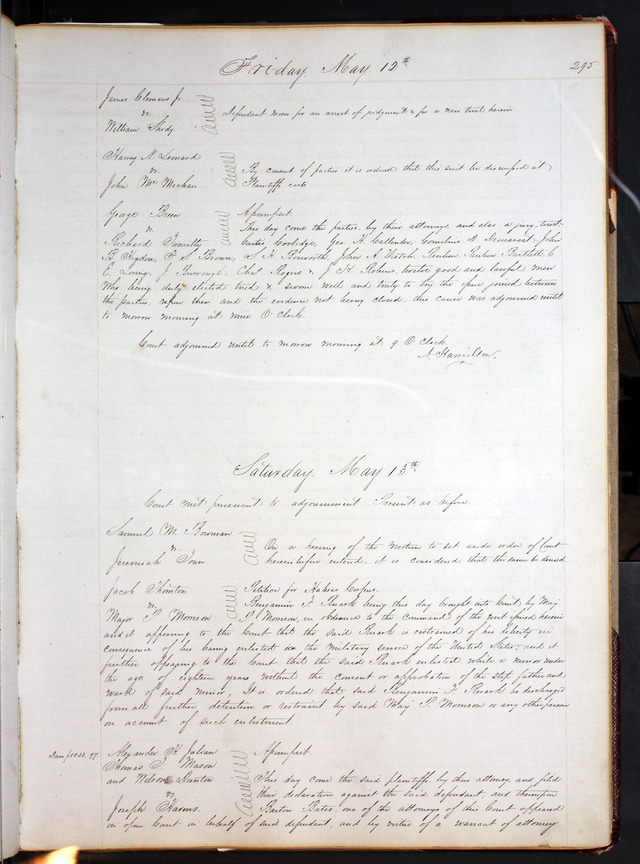 Friday May 12th 295
James Clemens Jr.
vs.
William Shedy
Defendant moves for an arrest of judgment & for a new trial herein
Harry N. Leonard
vs
John Mc Mechan
By consent of parties it is ordered that this suit be dismissed at
Plaintiffs costs
George Breen
vs
Assumpsit
This day come the parties, by their attorneys, and also a jury, to wit:
Richard
Curtis Coolidge, Geo. A. Callender, Cornelius S. Demarest, John
B. Higdon, F. S. Brown, S. H. Bosworth, John A. Reuben Bartlett, C.
E. Loring, J. Burrough, Chas Rogers & J. H. twelve good and lawful men
who being duly elected tried & sworn well and truly to try the issue joined between
the parties, and the evidence not being closed, this cause was adjourned until
to morrow morning at nine O'Clock.
Court adjourned until to morrow morning at 9 O'Clock
A. Hamilton.
Saturday, May 13th
Court met pursuant to adjournment Present as before.
Samuel M. Bowman
vs.
Jeremiah
On a hearing of the motion to set aside order of Court
heretofore entered, it is considered that the same be denied
Jacob Thornton
vs.
Petition for Habeas Corpus.
Benjamin F. being this day brought into Court, by Maj.
Major P. Morrison
P. Morrison, in obedience to the command of the writ issued herein
and it appearing to the Court that the said is restrained of his liberty in
consequence of his being enlisted in the military service of the United States, and it
further appearing to the Court that the said enlisted while a minor under
the age of eighteen years without the consent or approbation of the step father and
ward of said minor, It is ordered that said Benjamin F. be discharged
from all further, detention or restraint by said Maj P. Morrison or any other person
on account of such enlistment.
Alexander H. Julian
Thomas S. Mason
and Wilson Dunton
vs
Joseph
Assumpsit.
This day come the said plaintiffs by their attorney and filed
their declaration against the said defendant, and thereupon
Barton Bates, one of the attorneys of this Court appeared
in open Court in behalf of said defendant, and by virtue of a warrant of attorney